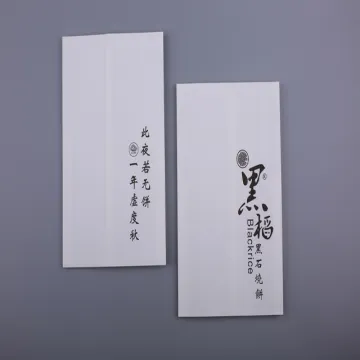 此夜若无饼
一年虚度秋
黑稻
Blackrice
黑石烧饼